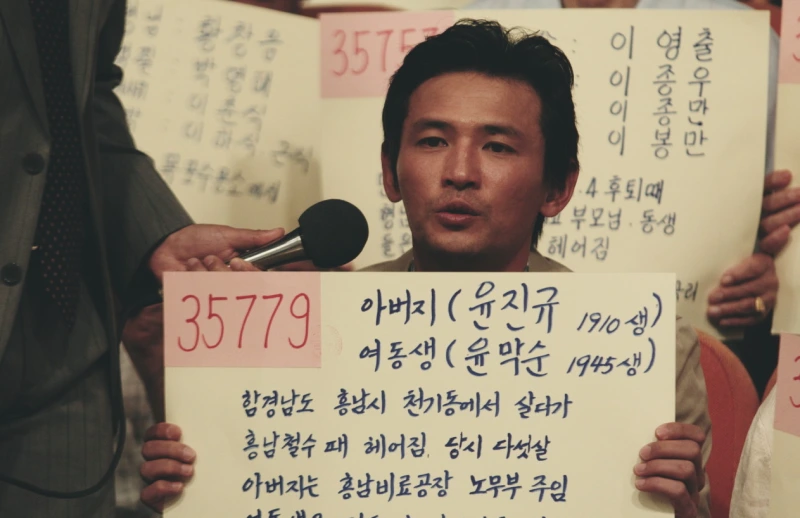 황 창 송
이 춘 식
35757
이 영 출
이 종 우
이 종 만
이 봉 만
.4 후퇴때
부모님. 동생
헤어짐
35779
아버지 ( 윤진규 1910생)
여동생 ( 윤막순 1945생)
함경남도 흥남시 천기동에서 살다가
흥남철수 때 헤어짐. 당시 다섯살
아버지는 흥남비료공장 노무부 주임